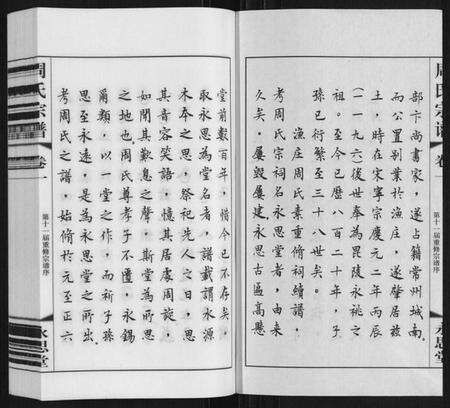 部卞尚書家，遂占籍常州城南。
而公置别業於漁庄，遂肇居兹
土，時在宋寧宗慶元二年丙辰
（一一九六）後世奉為毘陵永桃之
祖。至今已歷八百二十年，子
孫已衍繁至三十八世矣。
漁庄周氏素重脩祠續譜，
考周氏宗祠名永思堂者，由来
久矣，屢毁屢建永思古匾高懸
周氏宗譜
卷一
第十一届重修宗譜序
永思堂
堂前數百年，惜今已不存矣，
取永思為堂名者，譜載謂水源
木本之思，祭祀先人之日，思
其音容笑語，憶其居處周旋，
如聞其歎息之聲，斯堂為所思
之地也。周氏尊孝子不匱，永錫
爾類，以一堂之作，而祈子孫
思至永遠，是為永思堂之所出
考周氏之譜，始脩於元至正六
周氏宗譜
卷一
第十一届重修宗譜序
永思堂